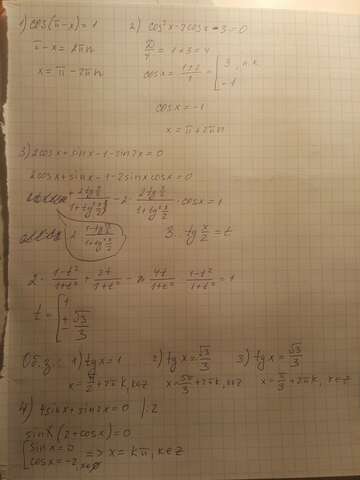 1) cos(π-x)=1
π-x=2πn
x=π-2πn
2) cos²x-2cosx-3=0
D/4=1+3=4
cosx=(1±2)/1=[3, н.к
-1
cosx=-1
x=π+2πn
3) 2cosx+sinx-1-sin2x=0
2cosx+sinx-1-2sinxcosx=0
+ 2tg x/2/(1+tg² x/2) - 2· 2tg x/2/(1+tg² x/2) ·cosx=1
2· (1-tg² x/2)/(1+tg² x/2)
3. tg x/2=t
2· (1-t²)/(1+t²) + 2t/(1+t²) - 4t/(1+t²) · (1-t²)/(1+t²) =1
t=[1
± √3/3
Об.з.: 1) tgx=1
x=π/2+2πk, k∈z
2) tgx=√3/3
x=5π/3+2πk, k∈z
3) tgx=√3/3
x=π/3+2πk, k∈z
4) 4sinx+sin2x=0 |:2
sinx(2+cosx)=0
[sinx=0
cosx=-2, x∈∅
=> x=kπ, k∈z